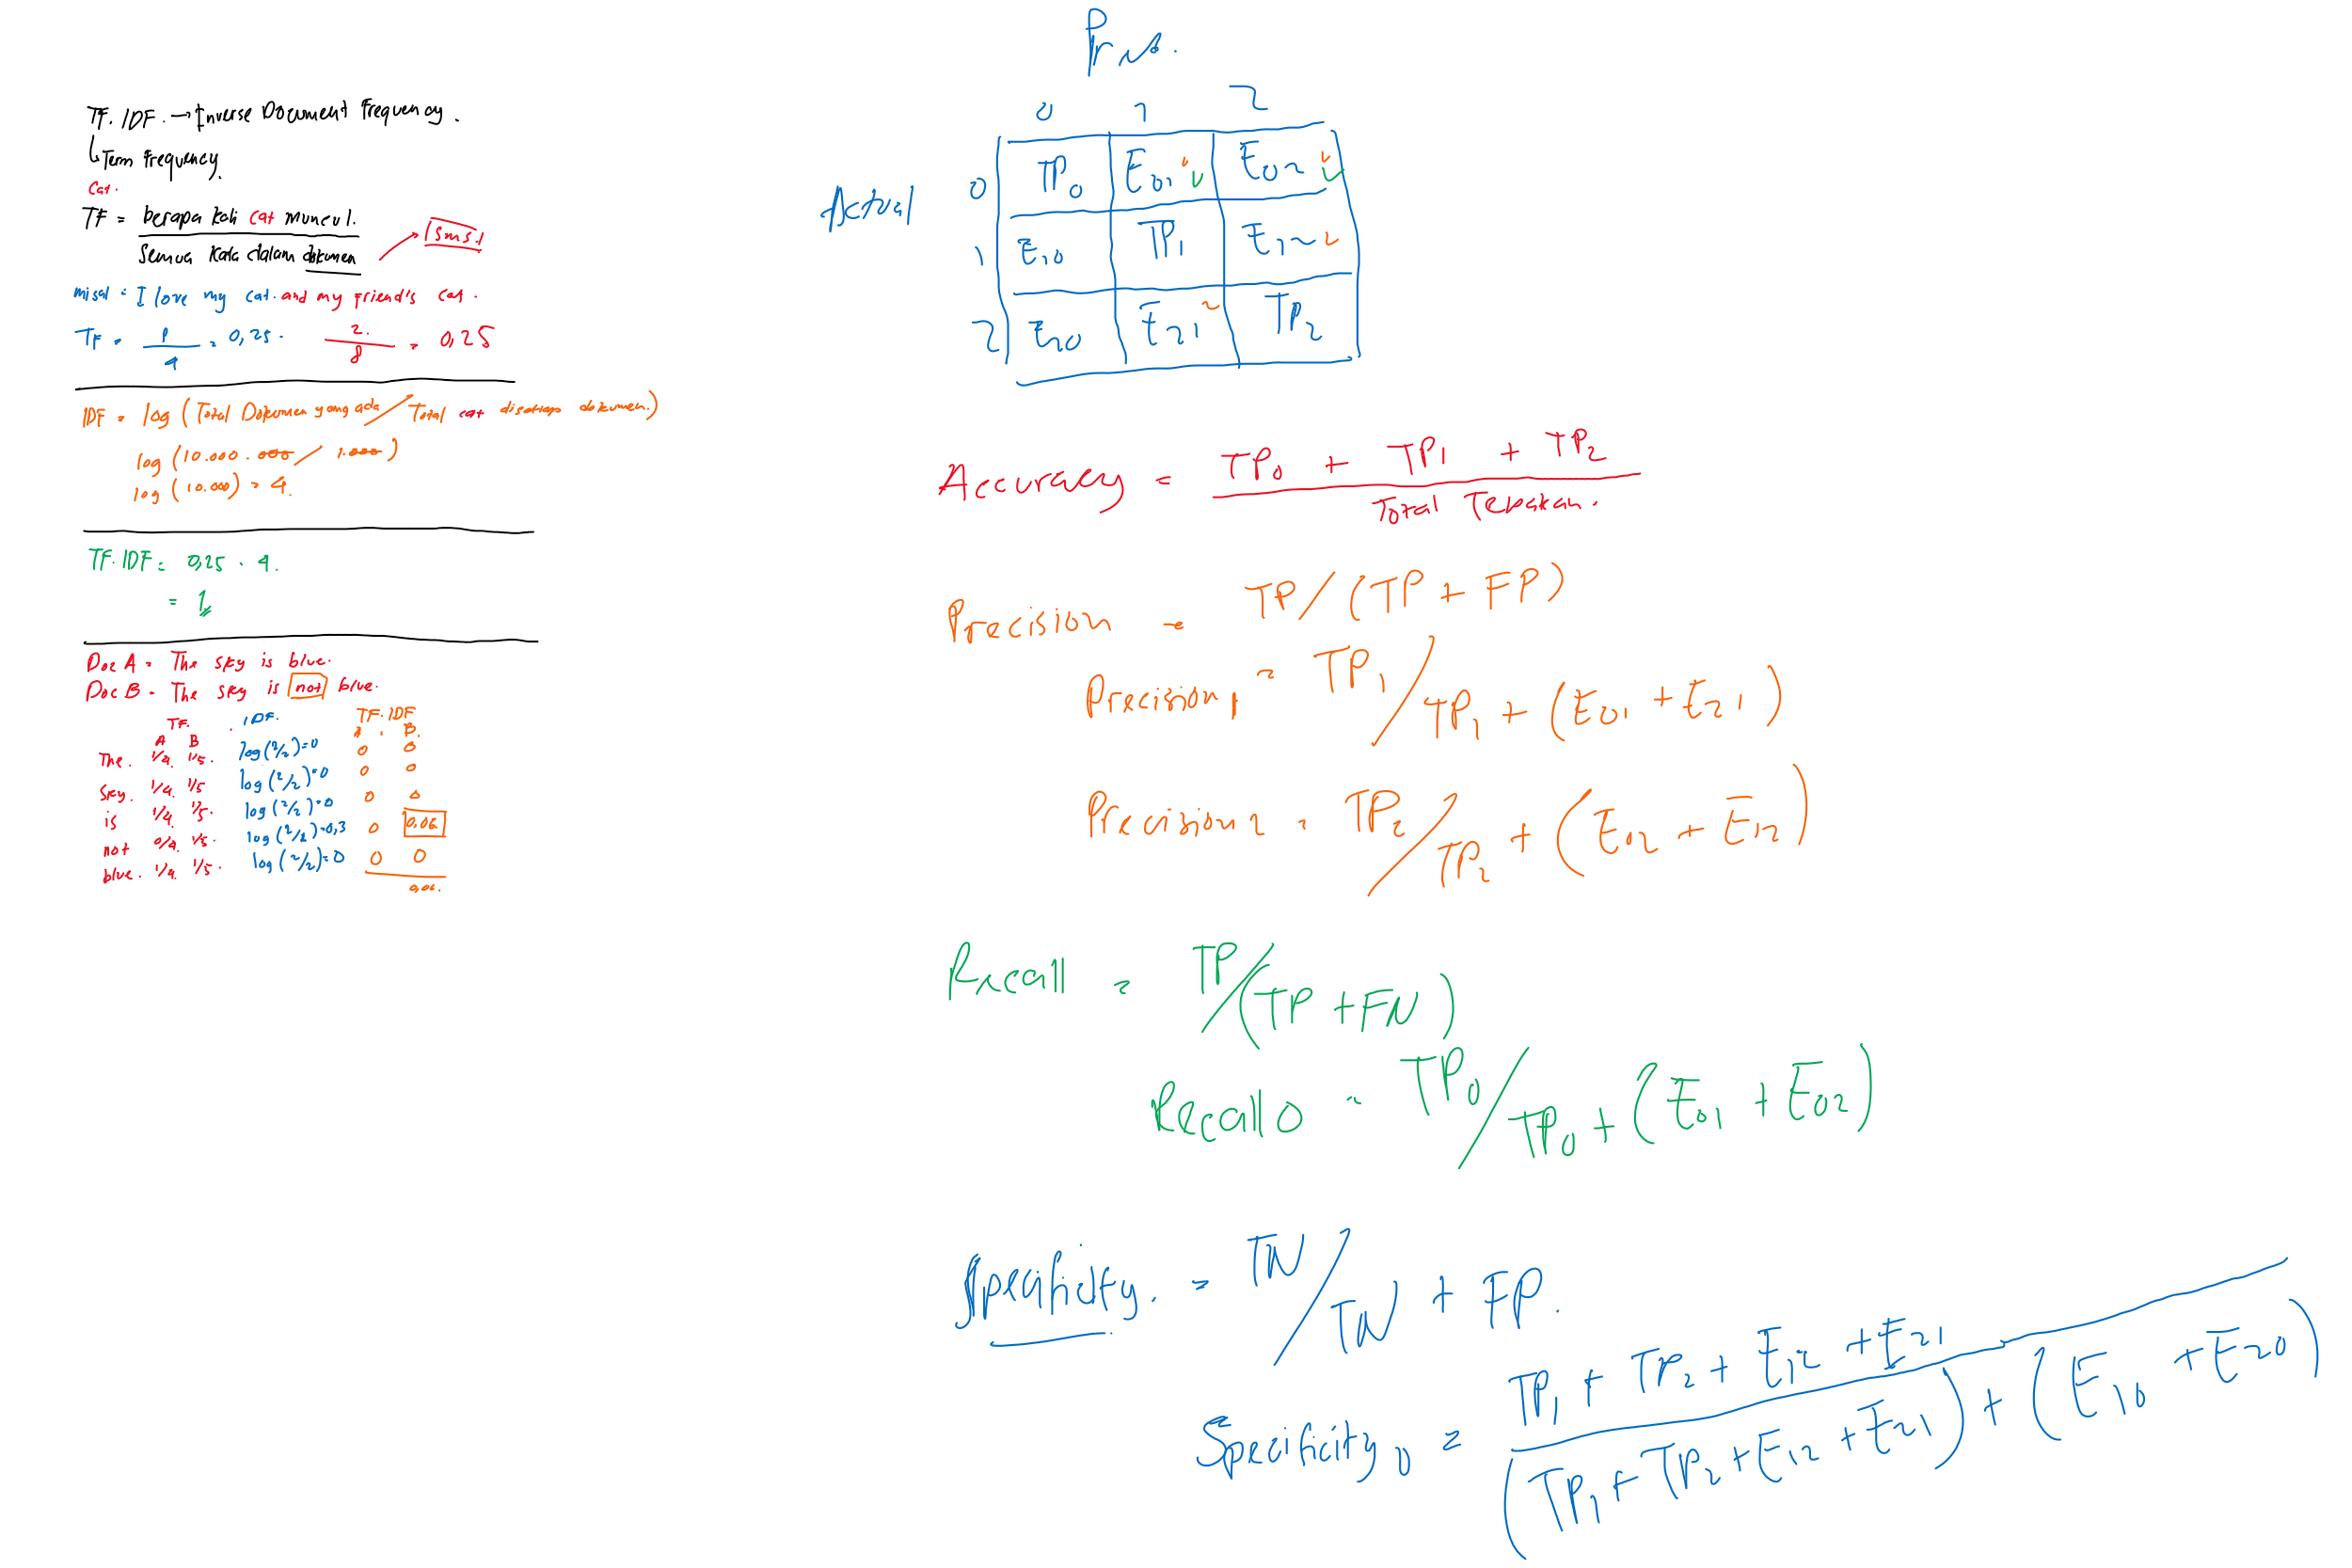 TF. IDF. → Inverse Document Frequency.
Term Frequency.
Cat.
TF = berapa kali cat muncul.
Semua kata dalam dokumen
1 sms.
misal = I love my cat. and my friend's cat.
TF = 1/4 = 0,25. 2./8 = 0,25
IDF = log (Total Dokumen yang ada / Total cat disetiap dokumen.)
log (10.000.000 / 1.000)
log (10.000) = 4.
TF.IDF = 0,25 . 4.
= 1
Doc A = The sky is blue.
Doc B = The sky is not blue.
TF. IDF. TF.IDF
A B A B.
The. 1/4. 1/5. log(2/2)=0 0 0
Sky. 1/4. 1/5 log(2/2)=0 0 0
is 1/4. 1/5. log(2/2)=0 0 0
not 0/4. 1/5. =0,3 0 0.06.
blue. 1/4. 1/5. log(2/2)=0 0 0
0,06.
0 1 2
Actual
0 TP0 E01 E02
1 E10 TP1 E12
2 E20 E21 TP2
Accuracy = TP0 + TP1 + TP2
Total Tebakan.
Precision = TP/(TP + FP)
Precision1 = TP1 / TP1 + (E01 + E21)
Precision2 = TP2 / TP2 + (E02 + E12)
Recall = TP/(TP + FN)
Recall0 = TP0 / TP0 + (E01 + E02)
Specificity. = TN / TN + FP.
Specificity0 = TP1 + TP2 + E12 + E21
(TP1 + TP2 + E12 + E21) + (E10 + E20)